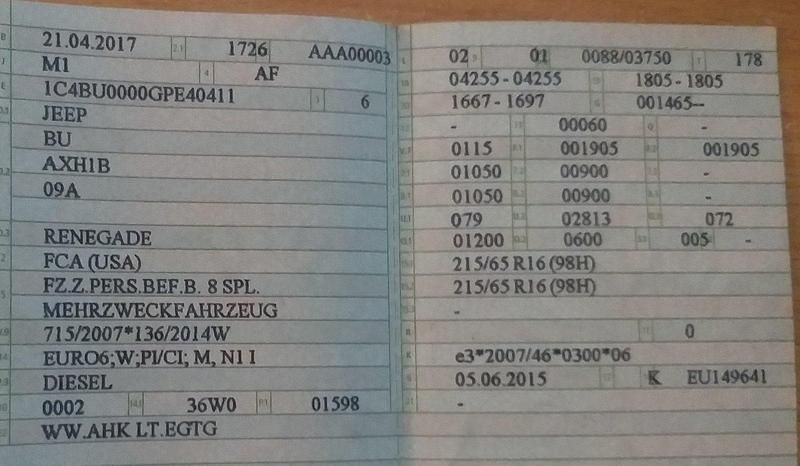 21.04.2017 1726 AAA00003
M1 AF
1C4BU0000GPE40411 6
JEEP
BU
AXH1B
09A
RENEGADE
FCA (USA)
FZ.Z.PERS.BEF.B. 8 SPL.
MEHRZWECKFAHRZEUG
715/2007*136/2014W
EURO6;W;PI/CI; M, N1 I
DIESEL
0002 36W0 01598
WW.AHK LT.EGTG
02 01 0088/03750 178
04255 - 04255 1805 - 1805
1667 - 1697 001465--
- 00060 -
0115 001905 001905
01050 00900 -
01050 00900 -
079 02813 072
01200 0600 005 -
215/65 R16 (98H)
215/65 R16 (98H)
-
0
e3*2007/46*0300*06
05.06.2015 K EU149641
-